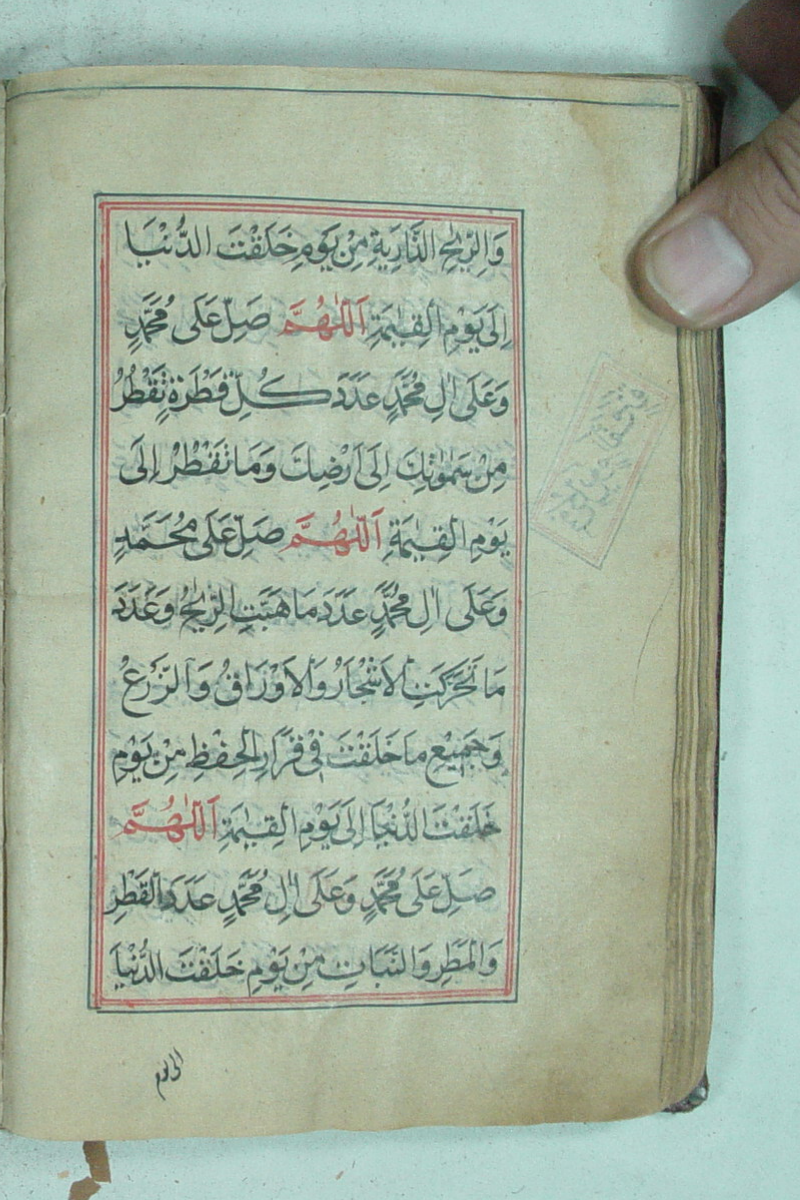 وَالرِّيٰحِ الذَّارِيَةِ مِنْ يَوْمِ خَلَقْتَ الدُّنْيَا
اِلَى يَوْمِ الْقِيٰمَةِ اَللّٰهُمَّ صَلِّ عَلَى مُحَمَّدٍ
وَعَلَى اٰلِ مُحَمَّدٍ عَدَدَ كُلِّ قَطْرَةٍ تَقْطُرُ
مِنْ سَمٰوٰتِكَ اِلَى اَرْضِكَ وَمَا تَقْطُرُ اِلَى
يَوْمِ الْقِيٰمَةِ اَللّٰهُمَّ صَلِّ عَلَى مُحَمَّدٍ
وَعَلَى اٰلِ مُحَمَّدٍ عَدَدَ مَا هَبَّتِ الرِّيٰحُ وَعَدَدَ
مَا تَحَرَّكَتِ الْاَشْجَارُ وَالْاَوْرَاقُ وَالزَّرْعُ
وَجَمِيْعِ مَا خَلَقْتَ فِيْ قَرَارِ الْحِفْظِ مِنْ يَوْمِ
خَلَقْتَ الدُّنْيَا اِلَى يَوْمِ الْقِيٰمَةِ اَللّٰهُمَّ
صَلِّ عَلَى مُحَمَّدٍ وَعَلَى اٰلِ مُحَمَّدٍ عَدَدَ الْقَطْرِ
وَالْمَطَرِ وَالنَّبَاتِ مِنْ يَوْمِ خَلَقْتَ الدُّنْيَا
الى يوم